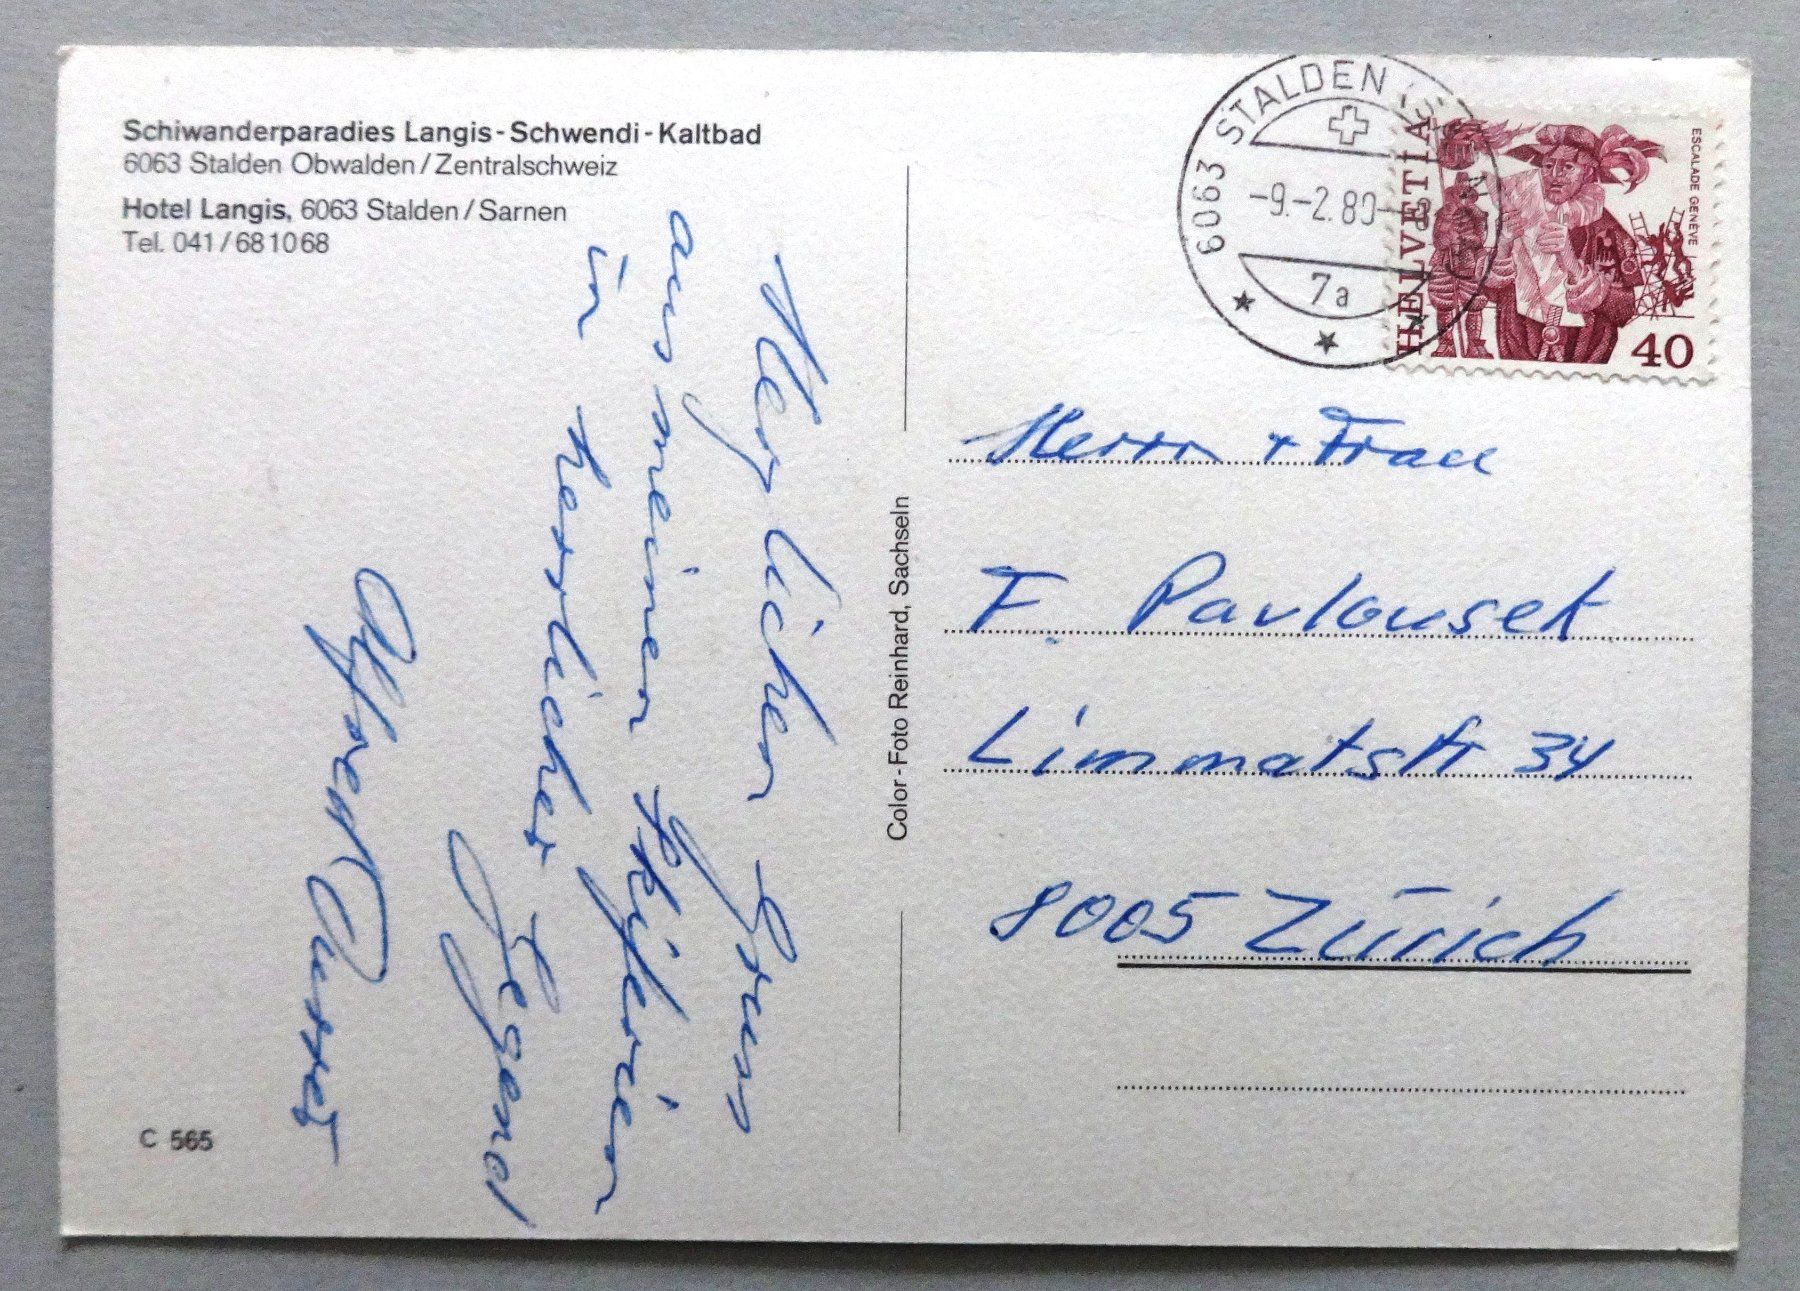 Schiwanderparadies Langis-Schwendi-Kaltbad
6063 Stalden Obwalden/Zentralschweiz
Hotel Langis, 6063 Stalden/Sarnen
Tel. 041/681068
Herzlichen Gruss
aus meinen Skiferien
in herrlicher Gegend
Alfred
C 565
Color-Foto Reinhard, Sachseln
6063 STALDEN
-9.-2.80
7a
HELVETIA
ESCALADE GENÈVE
40
Herrn + Frau
F. Pavlousek
Limmatstr 34
8005 Zürich